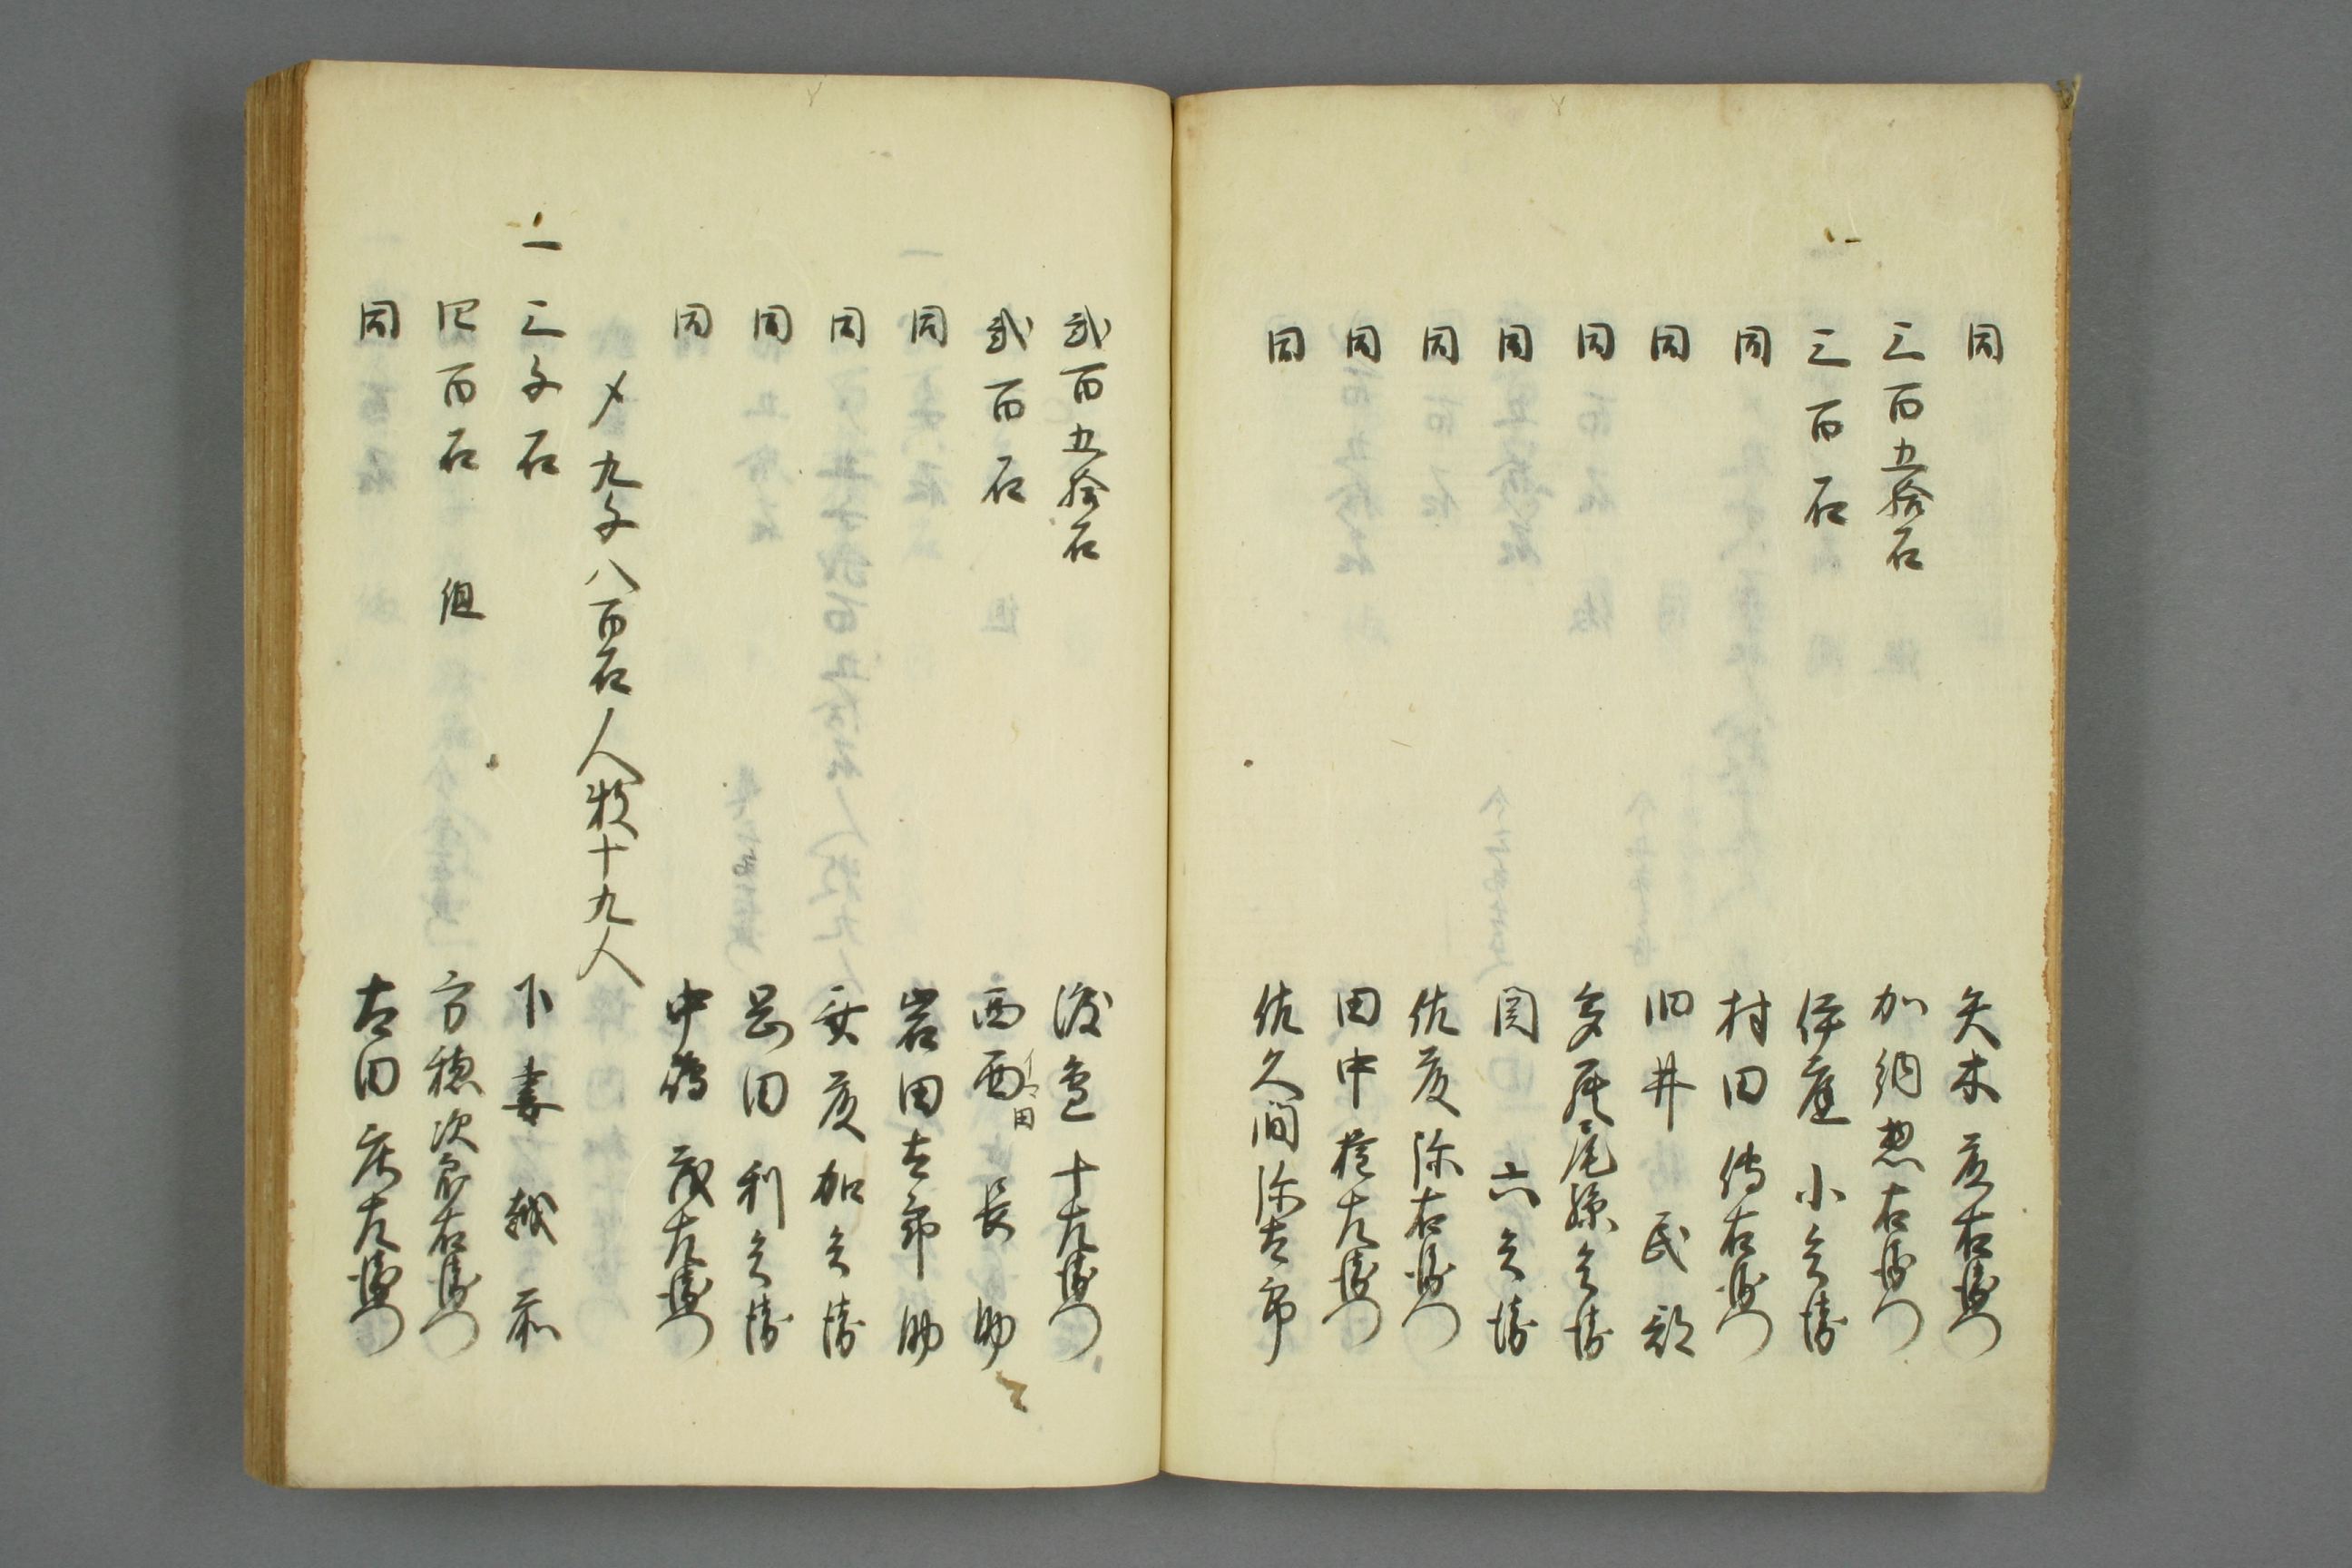 同 矢木彦右衛門
三百五拾石 加納惣右衛門
三百石 伊庭小兵衛
同 村田傳右衛門
同 旧井民部
同 多羅尾孫兵衛
同 関六兵衛
同 佐夏弥右衛門
同 田中権左衛門
同 佐久間弥太郎
弐百五拾石 渡邉十左衛門
弐百石 西西長助
イマ田
同 岩田吉郎助
同 安彦加兵衛
同 岡田利兵衛
同 中嶋茂左衛門
〆九千八百石人数十九人
一 三千石 下妻越前
四百石 組 方穂次郎右衛門
同 太田庄左衛門